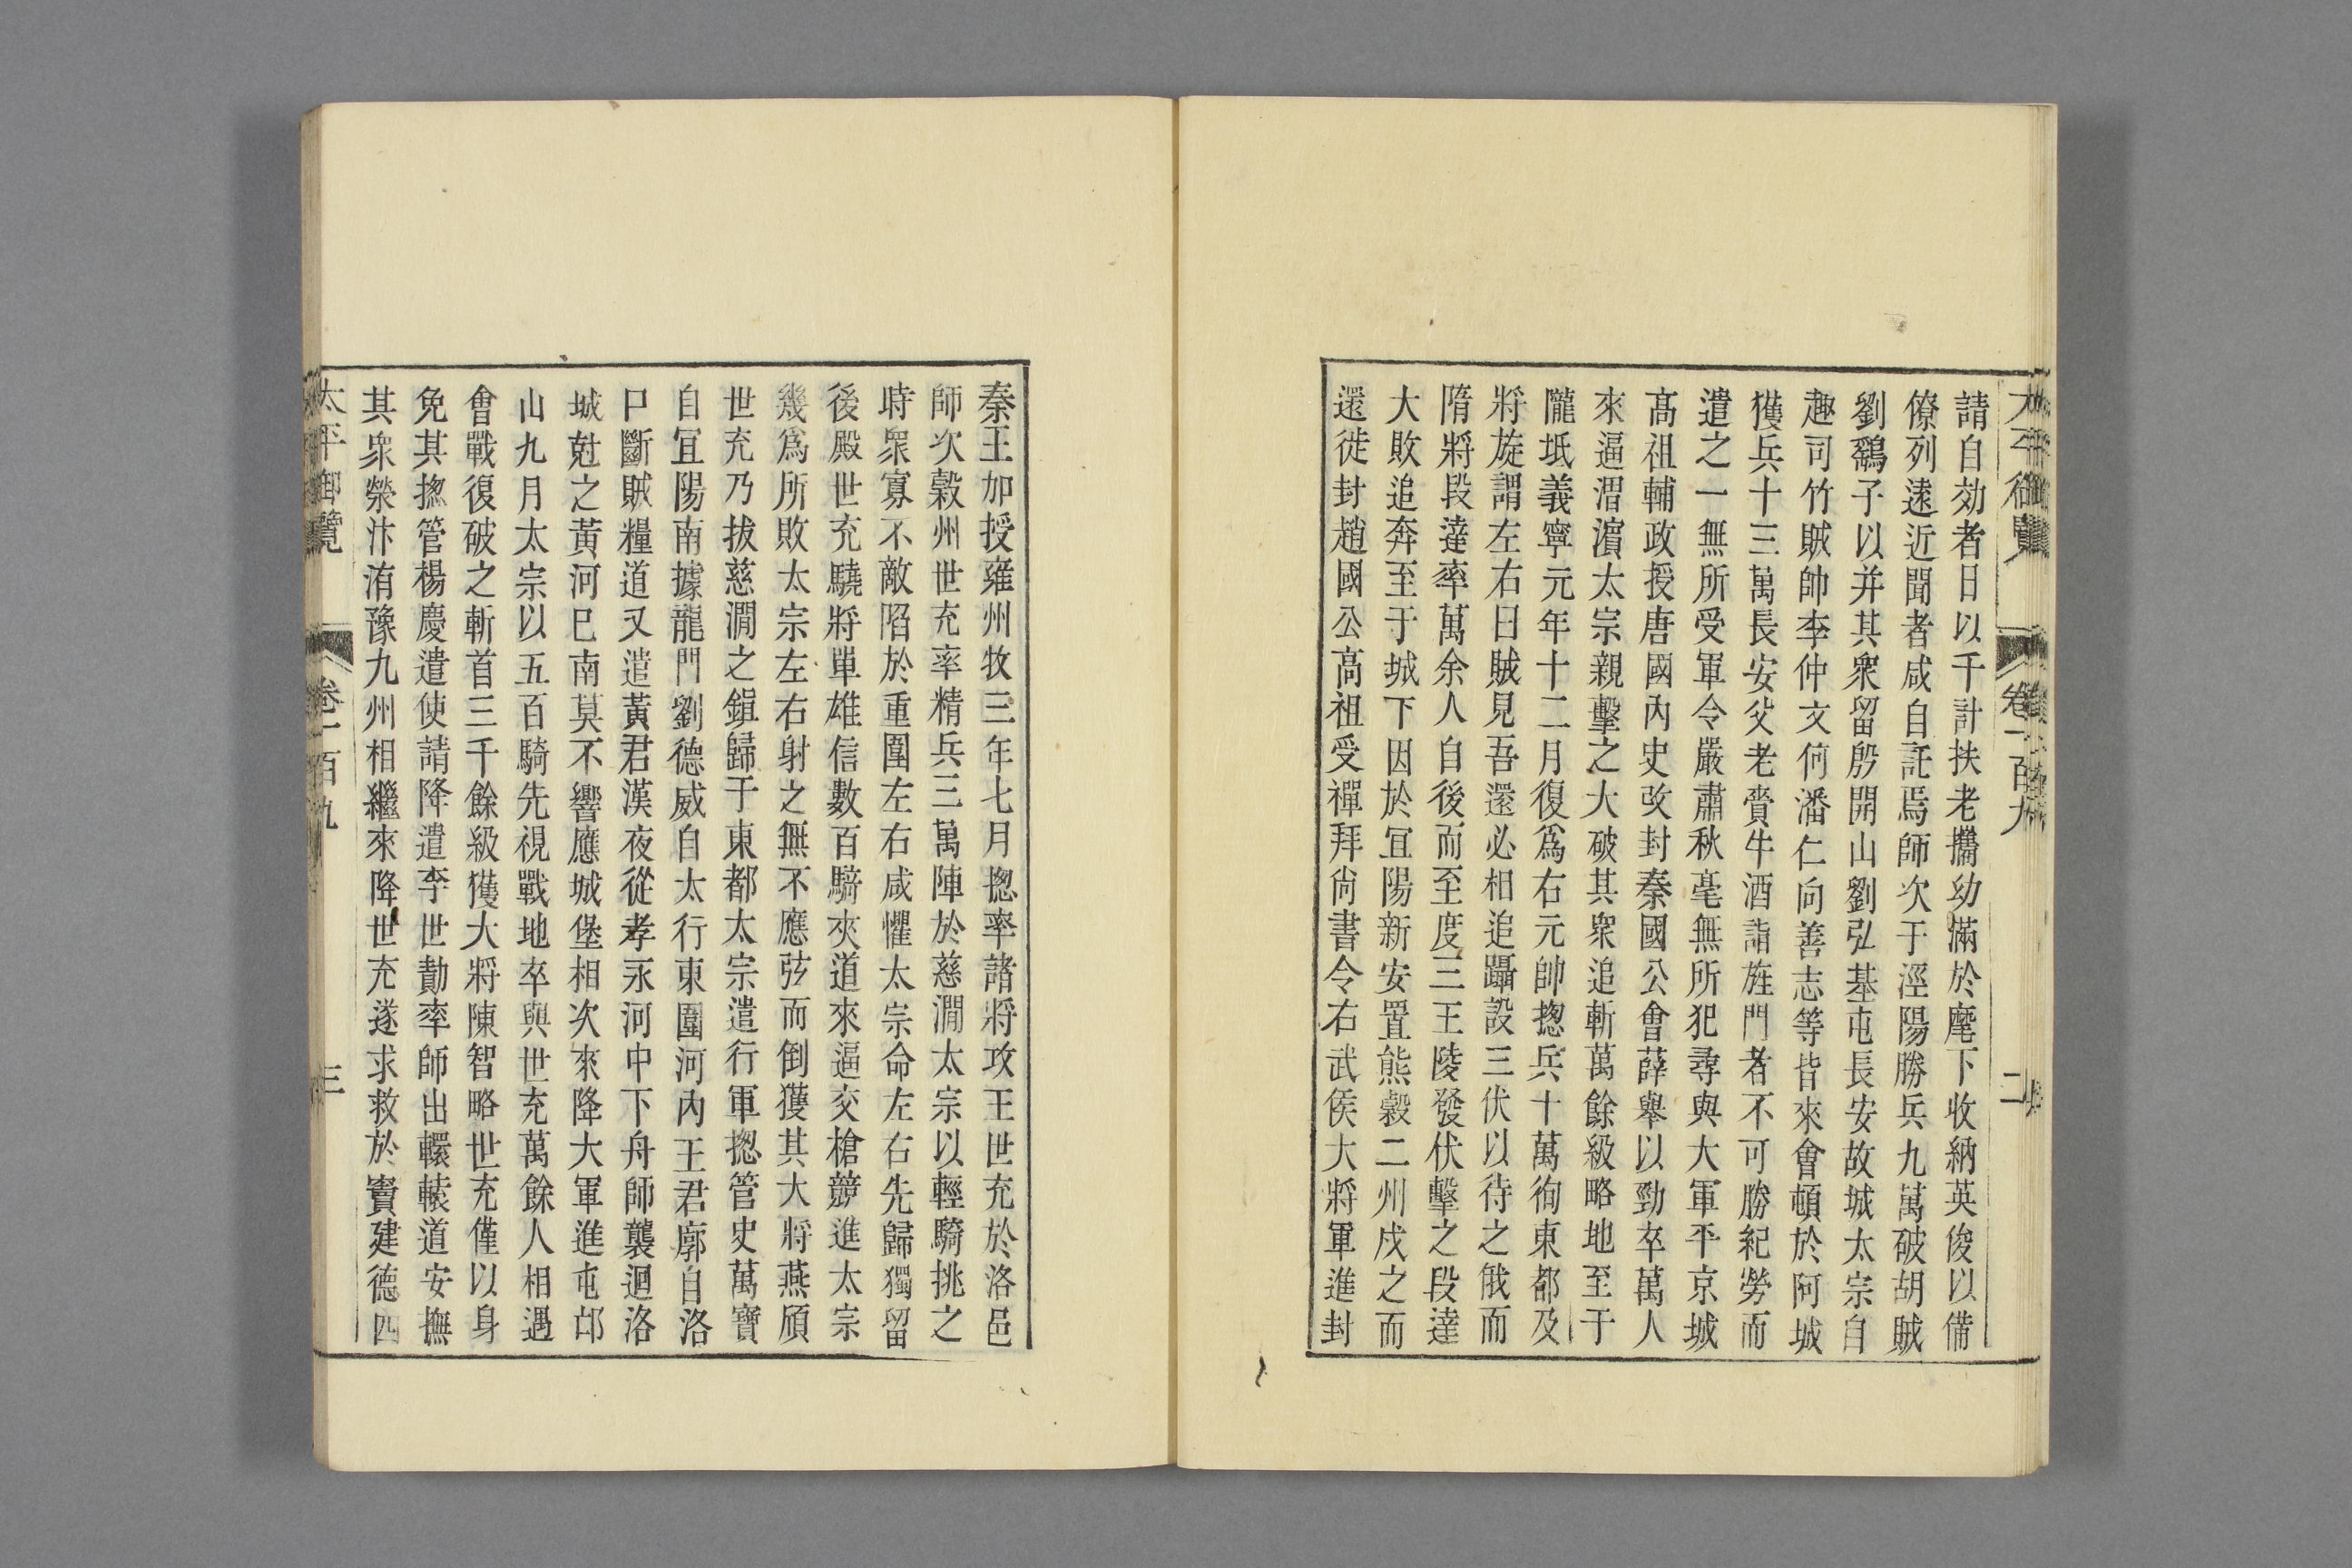 請自効者日以千計扶老攜幼滿於麾下收納英俊以備
僚列遠近聞者咸自託焉師次于涇陽勝兵九萬破胡賊
劉鷂子以并其衆留殷開山劉弘基屯長安故城太宗自
趣司竹賊帥李仲文何潘仁向善志等皆來會頓於阿城
獲兵十三萬長安父老賫牛酒詣旌門者不可勝紀勞而
遣之一無所受軍令嚴肅秋毫無所犯尋與大軍平京城
高祖輔政授唐國內史改封秦國公會薛舉以勁卒萬人
來逼渭濱太宗親擊之大破其衆追斬萬餘級略地至于
隴坻義寧元年十二月復爲右元帥揔兵十萬徇東都及
將旋謂左右曰賊見吾還必相追躡設三伏以待之俄而
隋將段達率萬余人自後而至度三王陵發伏擊之段達
大敗追奔至于城下因於宜陽新安置熊穀二州戍之而
還徙封趙國公高祖受禪拜尚書令右武侯大將軍進封
太平御覽 卷一百九 二
秦王加授雍州牧三年七月揔率諸將攻王世充於洛邑
師次穀州世充率精兵三萬陣於慈澗太宗以輕騎挑之
時衆寡不敵陷於重圍左右咸懼太宗命左右先歸獨留
後殿世充驍將單雄信數百騎夾道來逼交槍競進太宗
幾爲所敗太宗左右射之無不應弦而倒獲其大將燕頎
世充乃拔慈澗之鎮歸于東都太宗遣行軍揔管史萬寶
自宜陽南據龍門劉德威自太行東圍河內王君廓自洛
口斷賊糧道又遣黃君漢夜從孝永河中下舟師襲迴洛
城尅之黃河巳南莫不響應城堡相次來降大軍進屯邙
山九月太宗以五百騎先視戰地卒與世充萬餘人相遇
會戰復破之斬首三千餘級獲大將陳智略世充僅以身
免其揔管楊慶遣使請降遣李世勣率師出轘轅道安撫
其衆滎汴洧豫九州相繼來降世充遂求救於竇建德四
太平御覽 卷一百九 三